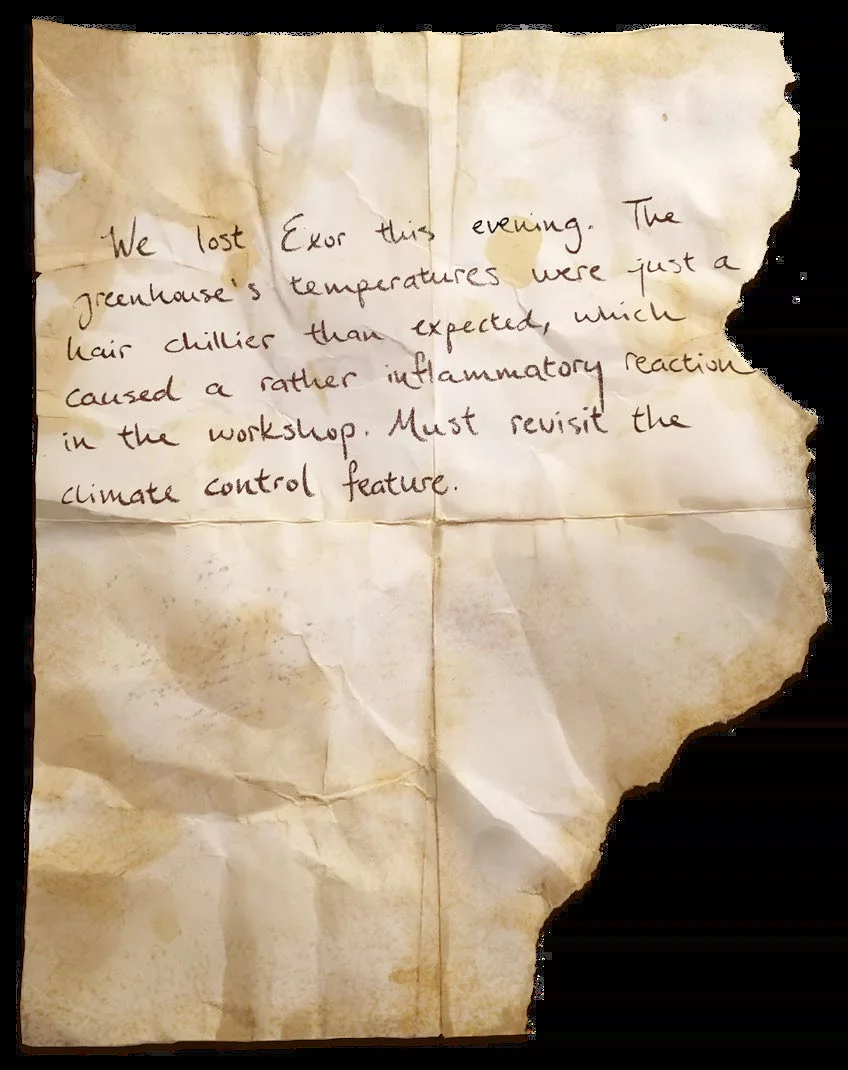 We lost Exor this evening. The
greenhouse's temperatures were just a
hair chillier than expected, which
caused a rather inflammatory reaction
in the workshop. Must revisit the
climate control feature.